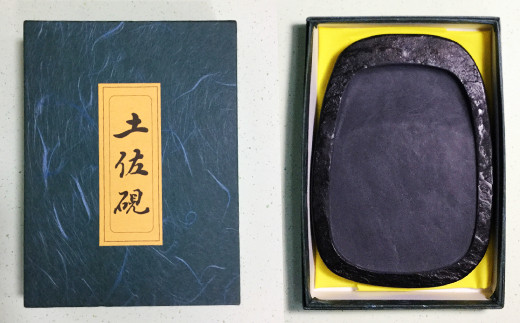 土佐硯